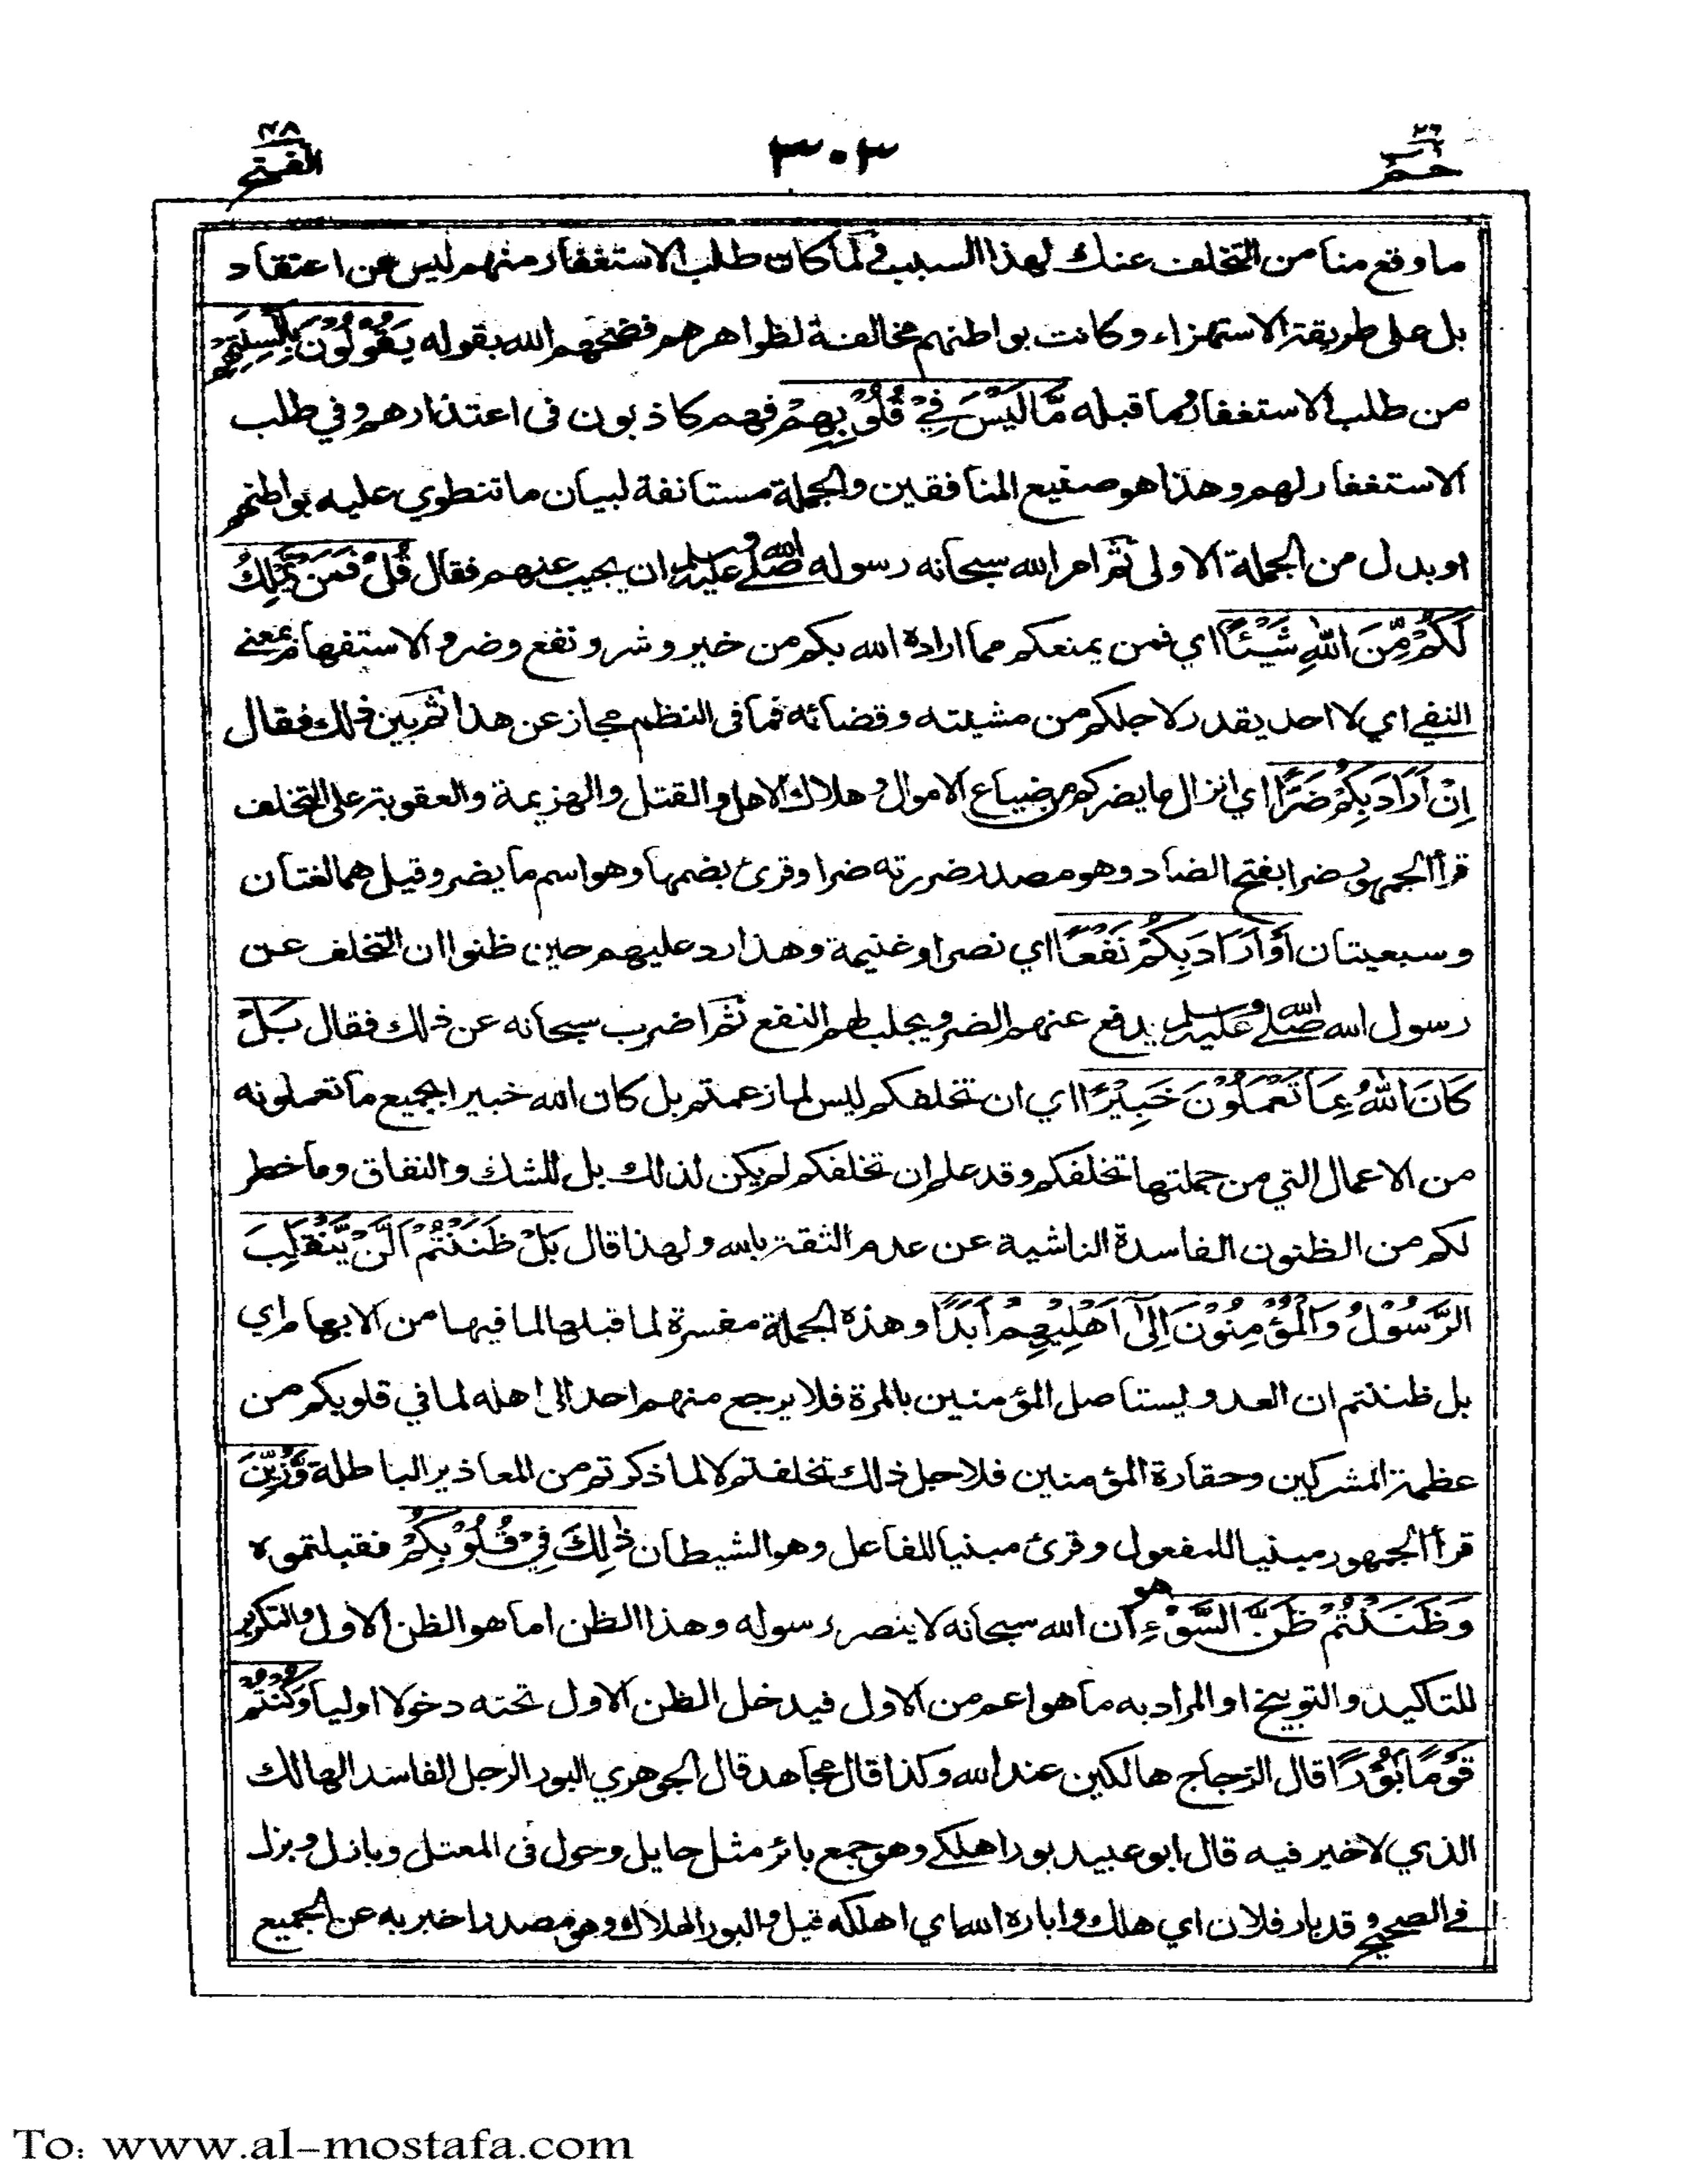 حم ٢٦
٣٠٣
الفتح ٤٨
ما وقع منا من التخلف عنك لهذا السبب ولما كان طلب الاستغفار منهم ليس عن اعتقاد
بل على طريقة الاستهزاء وكانت بواطنهم مخالفة لظواهرهم فضحهم الله بقوله يَقُوْلُوْنَ بِاَلْسِنَتِهِمْ
من طلب الاستغفار وما قبله مَّا لَيْسَ فِيْ قُلُوْبِهِمْ فهم كاذبون فى اعتذارهم وفي طلب
الاستغفار لهم وهذا هو صنيع المنافقين والجملة مستانفة لبيان ما تنطوي عليه بواطنهم
او بدل من الجملة الاولى ثم امر الله سبحانه رسوله صلى الله عليه وسلم ان يجيب عنهم فقال قُلْ فَمَنْ يَّمْلِكُ
لَكُمْ مِّنَ اللّٰهِ شَيْـًٔا اي فمن يمنعكم مما اراده الله بكم من خير وشر ونفع وضر والاستفهام بمعنى
النفي اي لا احد يقدر لاجلكم من مشيئته وقضائه فما فى النظم مجاز عن هذا ثم بين ذلك فقال
اِنْ اَرَادَ بِكُمْ ضَرًّا اي انزال ما يضركم من ضياع الاموال وهلاك الاهل والقتل والهزيمة والعقوبة على التخلف
قرأ الجمهور ضرا بفتح الضاد وهو مصدر ضررته ضرا وقرئ بضمها وهو اسم ما يضر وقيل هما لغتان
وسبعيتان اَوْ اَرَادَ بِكُمْ نَفْعًا اي نصرا وغنيمة وهذا رد عليهم حين ظنوا ان التخلف عن
رسول الله صلى الله عليه وسلم يدفع عنهم الضر ويجلب لهم النفع ثم اضرب سبحانه عن ذلك فقال بَلْ
كَانَ اللّٰهُ بِمَا تَعْمَلُوْنَ خَبِيْرًا اي ان تخلفكم ليس لما زعمتم بل كان الله خبيرا بجميع ما تعملونه
من الاعمال التي من جملتها تخلفكم وقد علم ان تخلفكم لم يكن لذلك بل للشك والنفاق وما خطر
لكم من الظنون الفاسدة الناشية عن عدم الثقة بالله ولهذا قال بَلْ ظَنَنْتُمْ اَنْ لَّنْ يَّنْقَلِبَ
الرَّسُوْلُ وَالْمُؤْمِنُوْنَ اِلٰى اَهْلِيْهِمْ اَبَدًا وهذه الجملة مفسرة لما قبلها لما فيها من الابهام اي
بل ظننتم ان العدو ليستاصل المؤمنين بالمرة فلا يرجع منهم احد الى اهله لما في قلوبكم من
عظمة المشركين وحقارة المؤمنين فلاجل ذلك تخلفتم لا لما ذكرتم من المعاذير الباطلة وَّزُيِّنَ
قرأ الجمهور مبنيا للمفعول وقرئ مبنيا للفاعل وهو الشيطان ذٰلِكَ فِيْ قُلُوْبِكُمْ فقبلتموه
وَظَنَنْتُمْ ظَنَّ السَّوْءِ هو ان الله سبحانه لا ينصر رسوله وهذا الظن اما هو الظن الاول والتكرير
للتاكيد والتوبيخ او المراد به ما هو اعم من الاول فيدخل الظن الاول تحته دخولا اوليا وَكُنْتُمْ
قَوْمًا بُوْرًا قال الزجاج هالكين عند الله وكذا قال مجاهد قال الجوهري البور الرجل الفاسد الهالك
الذي لا خير فيه قال ابو عبيد بورا هلكى وهو جمع بائر مثل حايل وحول فى المعتل وبازل وبزل
في الصحيح وقد بار فلان اي هلك وابارة الله اي اهلكه قيل والبور الهلاك وهو مصدر اخبر به عن الجميع
To: www.al-mostafa.com